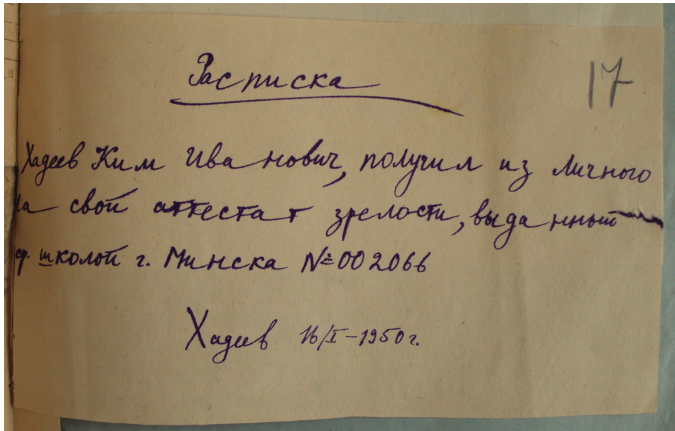 17
Расписка
Хадеев Ким Иванович, получил из личного
ла свой аттестат зрелости, выданный
ср. школой г. Минска № 002066
Хадеев 16/I – 1950 г.